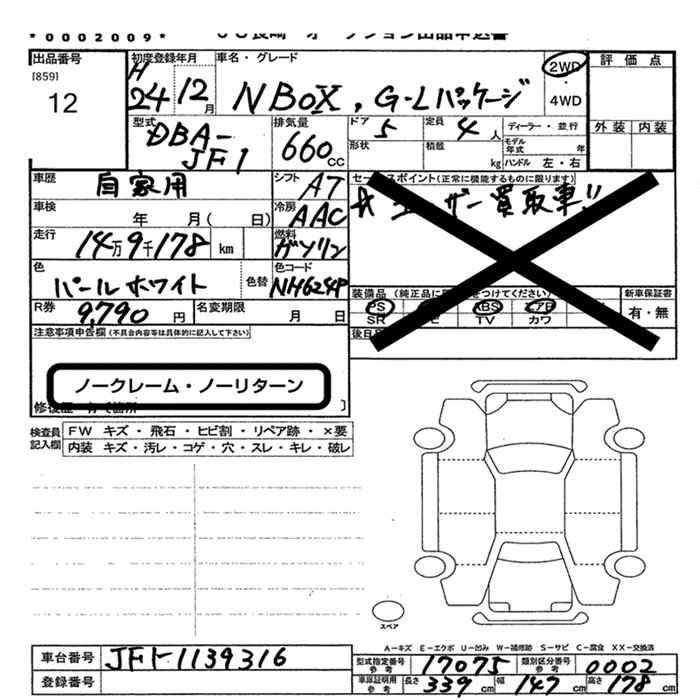 *0002009*
出品番号 [859] 12
初度登録年月 H24 12月
車名・グレード N BoX, G-Lパッケージ
2WD・4WD
評価点
外装 内装
型式 DBA-JF1
排気量 660 CC
ドア 5 定員 4人
形状 積載 kg
ディーラー・並行
モデル年式 年
ハンドル 左・右
車歴 自家用
シフト AT
セールスポイント(正常に機能するものに限ります)
ユーザー買取車!!
車検 年 月( 日)
冷房 AAC
走行 14万9千178 km
燃料 ガソリン
色 パールホワイト 色替
色コード NH624P
装備品
新車保証書 有・無
PS ABS エアB
SR TV カワ
R券 9,790円
名変期限 月 日
後日
注意事項申告欄(不具合内容等は具体的に記入して下さい)
ノークレーム・ノーリターン
検査員記入欄
FW キズ・飛石・ヒビ割・リペア跡・×要
内装 キズ・汚レ・コゲ・穴・スレ・キレ・破レ
スペア
A-キズ E-エクボ U-凹み W-補修跡 S-サビ C-腐食 XX-交換済
車台番号 JF1-1139316
型式指定番号 参考 17075 類別区分番号 参考 0002
登録番号
車庫証明用 参考 長さ 339cm 幅 147cm 高さ 178cm